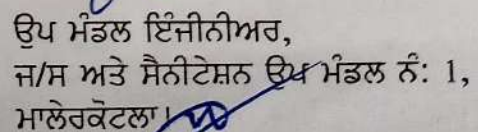 ਉਪ ਮੰਡਲ ਇੰਜੀਨੀਅਰ,
ਜ/ਸ ਅਤੇ ਸੈਨੀਟੇਸ਼ਨ ਉਪ ਮੰਡਲ ਨੰ: 1,
ਮਾਲੇਰਕੋਟਲਾ।